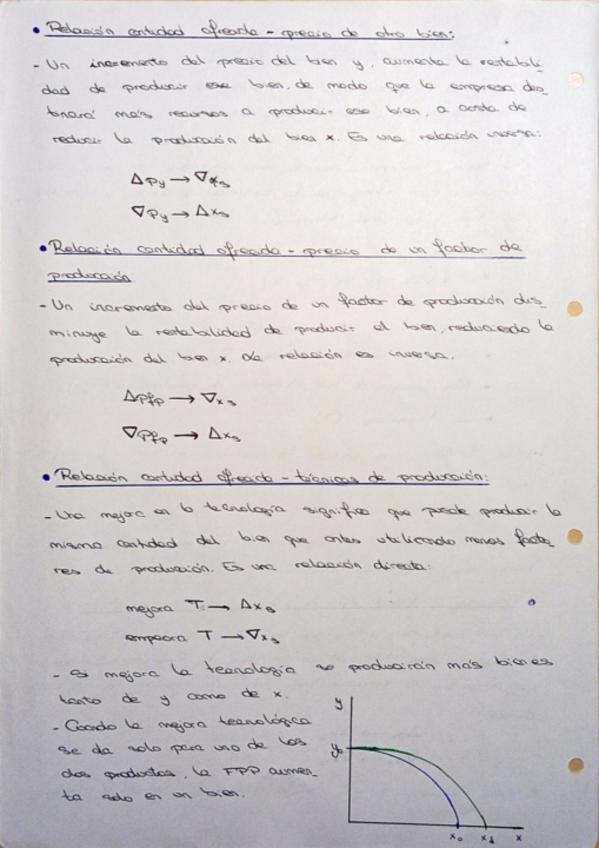 • Relación cantidad ofrecida - precio de otro bien:
- Un incremento del precio del bien y, aumenta la rentabili-
dad de producir ese bien, de modo que la empresa des-
tinará más recursos a producir ese bien, a costa de
reducir la producción del bien x. Es una relación inversa:
△Py → ▽xs
▽Py → △xs
• Relación cantidad ofrecida - precio de un factor de
producción
- Un incremento del precio de un factor de producción dis-
minuye la rentabilidad de producir el bien, reduciendo la
producción del bien x. La relación es inversa.
△Pfp → ▽xs
▽Pfp → △xs
• Relación cantidad ofrecida - técnicas de producción:
- Una mejora en la tecnología significa que puede producir la
misma cantidad del bien que antes utilizando menos facto-
res de producción. Es una relación directa:
mejora T → △xs
empeora T → ▽xs
- Si mejora la tecnología se producirán más bienes
tanto de y como de x.
- Cuando la mejora tecnológica
se da solo para uno de los
dos productos, la FPP aumen-
ta solo en un bien.
y
y₀
x₀ x₁ x